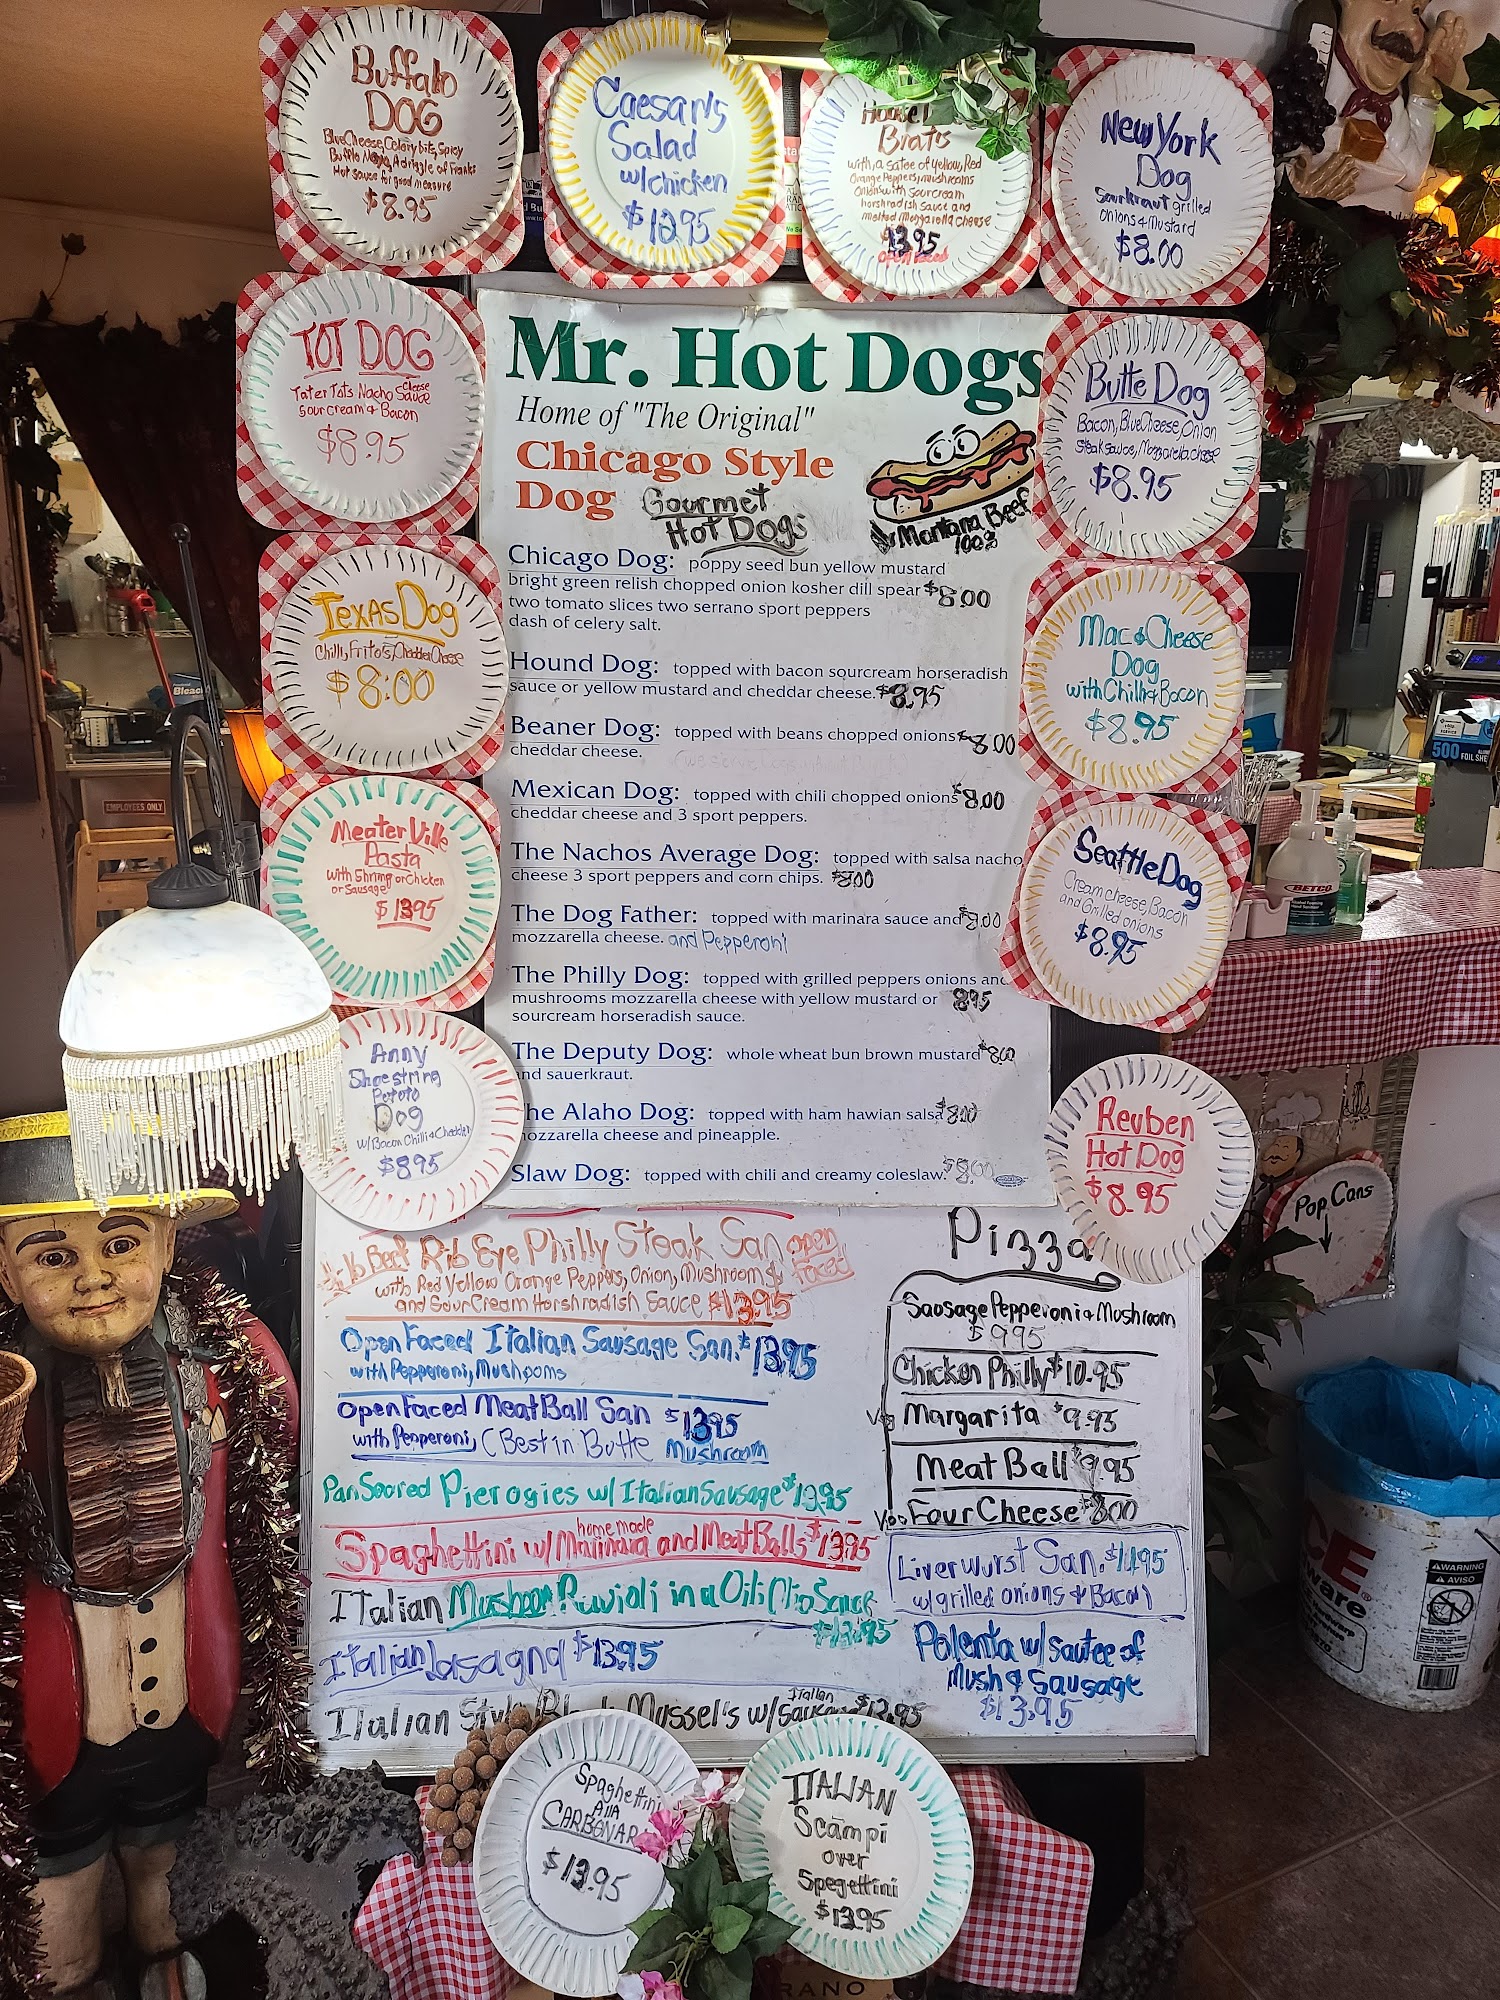 Buffalo
DOG
BlueCheese, Celery bits, Spicy
Buffalo Mayo, A drizzle of Franks
Hot sauce for good measure
$8.95
Caesar's
Salad
w/chicken
$13.95
House
Brats
with, a satee of yellow, Red
Orange Peppers, mushrooms
Onions with sour cream
horshradish sauce and
malted mozzarella cheese
13.95
Open Faced
New York
Dog
Sourkraut grilled
onions & Mustard
$8.00
TOT DOG
Tater Tots Nacho Cheese Sauce
sour cream & Bacon
$8.95
Butte Dog
Bacon, BlueCheese, Onion
Steak sauce, Mozzarella cheese
$8.95
Texas Dog
Chilly, Frito's, Cheddar Cheese
$8:00
Mac & Cheese
Dog
with Chilli & Bacon
$8.95
Meater Ville
Pasta
with Shrimp or Chicken
or Sausage
$13.95
Seattle Dog
Cream cheese, Bacon
and Grilled onions
$8.95
Anny
Shoestring
Potato
Dog
w/Bacon Chilli & Chedder
$8.95
Reuben
Hot Dog
$8.95
Mr. Hot Dogs
Home of "The Original"
Chicago Style
Dog
Gourmet
Hot Dogs
Montana Beef
100%
Chicago Dog: poppy seed bun yellow mustard
bright green relish chopped onion kosher dill spear $8.00
two tomato slices two serrano sport peppers
dash of celery salt.
Hound Dog: topped with bacon sourcream horseradish
sauce or yellow mustard and cheddar cheese. $8.95
Beaner Dog: topped with beans chopped onions $8.00
cheddar cheese.
Mexican Dog: topped with chili chopped onions $8.00
cheddar cheese and 3 sport peppers.
The Nachos Average Dog: topped with salsa nacho
cheese 3 sport peppers and corn chips. $8.00
The Dog Father: topped with marinara sauce and $8.00
mozzarella cheese. and Pepperoni
The Philly Dog: topped with grilled peppers onions and
mushrooms mozzarella cheese with yellow mustard or 8.95
sourcream horseradish sauce.
The Deputy Dog: whole wheat bun brown mustard $8.00
and sauerkraut.
The Alaho Dog: topped with ham hawian salsa $8.00
mozzarella cheese and pineapple.
Slaw Dog: topped with chili and creamy coleslaw. $8.00
Beef Rib Eye Philly Steak San open faced
with Red Yellow Orange Peppers, Onion, Mushroom &
and Sour Cream Horshradish Sauce $13.95
Open Faced Italian Sausage San. $13.95
with Pepperoni, Mushooms
Open Faced MeatBall San $13.95
with Pepperoni, (Best in Butte Mushroom
Pan Seared Pierogies w/ Italian Sausage $13.95
Spaghettini w/ homemade Marinara and MeatBalls $13.95
Italian Mushroom Ravioli in a Oili Olio Sauce
$13.95
Italian Lasagna $13.95
Italian Style Black Mussel's w/ Italian sausage $13.95
Pizza
Sausage Pepperoni & Mushroom
$9.95
Chicken Philly $10.95
Margarita $9.95
Meat Ball $9.95
Four Cheese $8.00
Liverwurst San. $14.95
w/grilled onions & Bacon
Polenta w/ sautee of
Mush & Sausage
$13.95
Spaghettini
Alla
CARBONARA
$13.95
ITALIAN
Scampi
over
Spegettini
$13.95
Pop Cans
EMPLOYEES ONLY
Bleach
BETCO
500 FOIL SHEETS
WARNING
AVISO